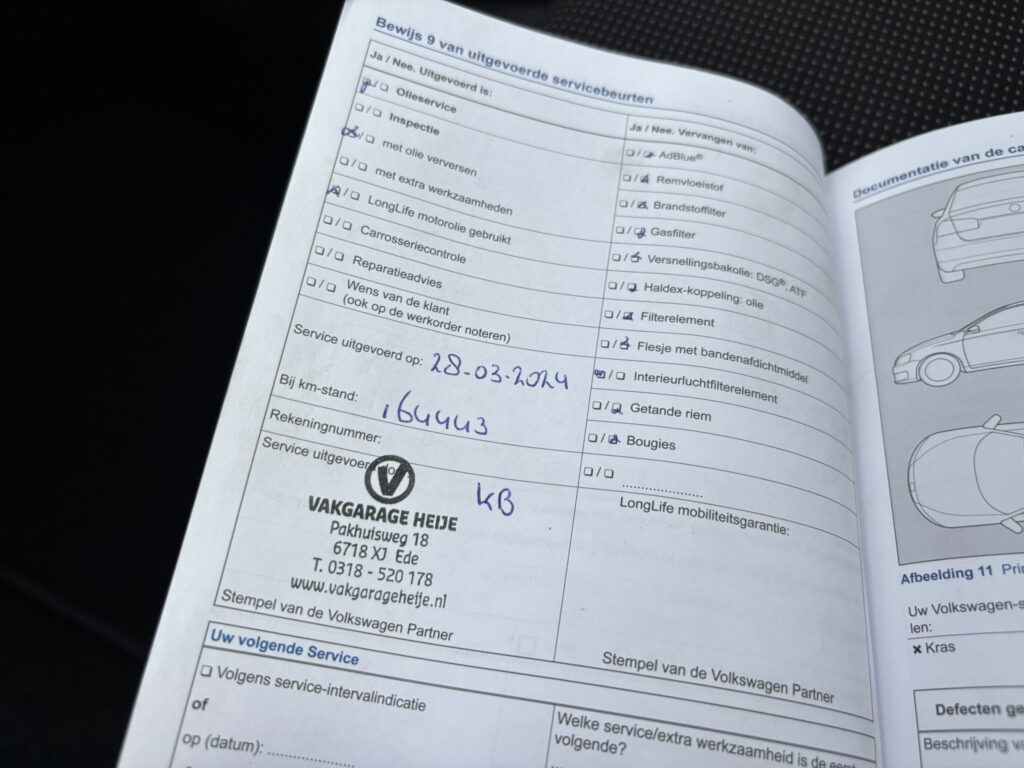 Bewijs 9 van uitgevoerde servicebeurten
Ja / Nee. Uitgevoerd is:
Olieservice
Inspectie
met olie verversen
met extra werkzaamheden
LongLife motorolie gebruikt
Carrosseriecontrole
Reparatieadvies
Wens van de klant
(ook op de werkorder noteren)
Service uitgevoerd op: 28-03-2024
Bij km-stand: 164443
Rekeningnummer:
Service uitgevoerd
KB
VAKGARAGE HEIJE
Pakhuisweg 18
6718 XJ Ede
T. 0318 - 520 178
www.vakgarageheije.nl
Stempel van de Volkswagen Partner
Ja / Nee. Vervangen van:
AdBlue®
Remvloeistof
Brandstoffilter
Gasfilter
Versnellingsbakolie: DSG®, ATF
Haldex-koppeling: olie
Filterelement
Flesje met bandenafdichtmiddel
Interieurluchtfilterelement
Getande riem
Bougies
LongLife mobiliteitsgarantie:
Stempel van de Volkswagen Partner
Uw volgende Service
Volgens service-intervalindicatie
of
op (datum):
Welke service/extra werkzaamheid is de
volgende?
Documentatie van de
Afbeelding 11
Uw
len:
✖ Kras
Defecten
Beschrijving